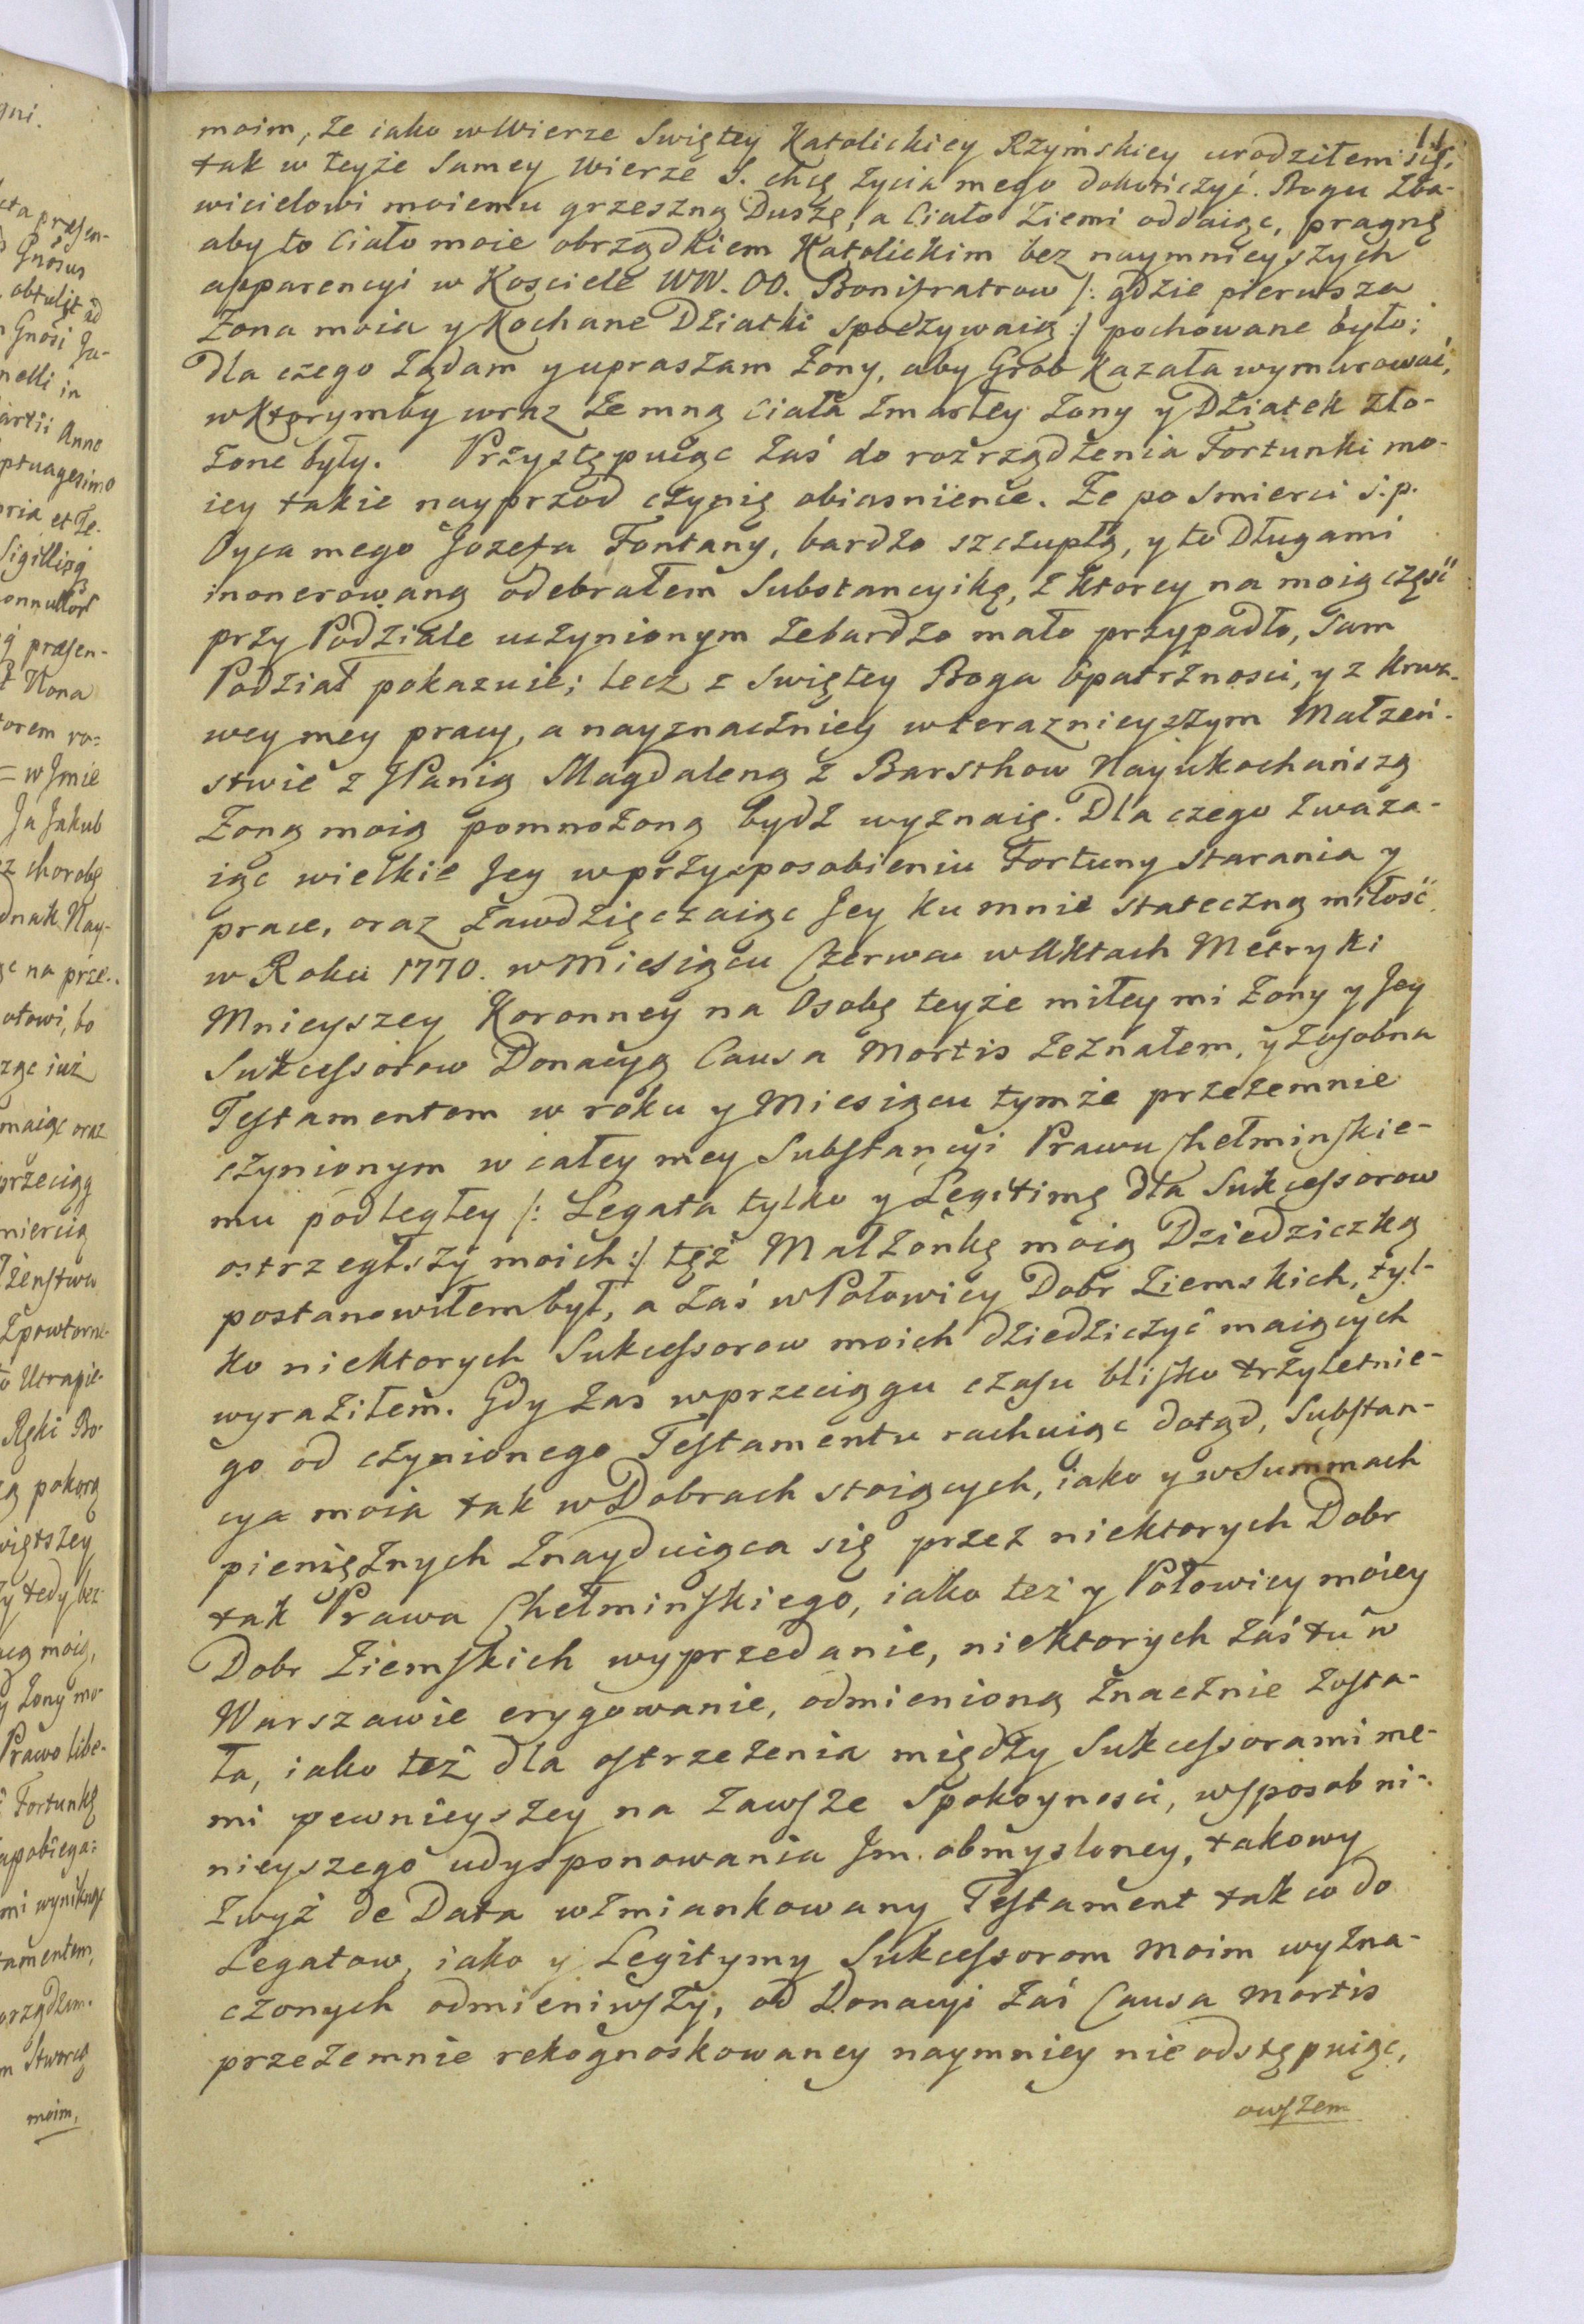 moim, że iako w Wierze Swiętey Katolickiey Rzymskiey urodziłem się,
tak w teyże Samey Wierze S. chcę życia mego dokończyć. Bogu Zba-
wicielowi moiemu grzeszną Duszę, a Ciało Ziemi oddaiąc, pragnę
aby to Ciało moie obrządkiem Katolickim bez naymnieyszych
apparencyi w Kosciele WW. OO. Bonifratrow /: gdzie pierwsza
Zona moia y Kochane Dziatki spoczywaią :/ pochowane było;
Dla czego żądam y upraszam Zony, aby Grob kazała wymurować,
w ktorymby wraz ze mną ciała zmarłey Zony y Dziatek zło-
żone były. Przystępuiąc zaś do rozrządzenia Fortunki mo-
iey takie nayprzod czynię obiasnienie. Ze po smierci s. p.
Oyca mego Jozefa Fontany, bardzo szczupłą, y to Długami
inonerowaną odebrałem Substancyikę, z ktorey na moią część
przy Podziale uczynionym że bardzo mało przypadło, sam
Podział pokazuie; lecz z Swiętey Boga Opatrznosci, y z krwa-
wey mey pracy, a nayznaczniey w teraznieyszym Małżeń-
stwie z JPanią Magdaleną z Barsthow Nayukochańszą
Zoną moią pomnożoną bydz wyznaię. Dla czego zwaza-
iąc wielkie Jey w przysposobieniu Fortuny starania y
prace, oraz zawdzięczaiąc Jey ku mnie stateczną miłość
w Roku 1770. w Miesiącu Czerwcu w Aktach Metryki
Mnieyszey Koronney na Osobę teyże miłey mi Zony y Jey
Sukcessorow Donacyą Causa Mortis zeznałem, y z osobna
Testamentem w roku y Miesiącu tymże przezemnie
czynionym w całey mey Substancyi Prawu Chełminskie-
mu podległey /: Legata tylko y Legitimę dla Sukcessorow
ostrzegłszy moich :/ tęż Małżonkę moią Dziedziczką
postanowiłem był, a zaś w Połowicy Dobr Ziemskich, tyl-
ko niektorych Sukcessorow moich dziedziczyć maiących
wyraziłem. Gdy zas w przeciągu czasu blisko trzyletnie-
go od czynionego Testamentu rachuiąc dotąd, Substan-
cya moia tak w Dobrach stoiących, iako y w Summach
pieniężnych znayduiąca się przez niektorych Dobr
tak Prawa Chełminskiego, iako też y Połowicy moiey
Dobr Ziemskich wyprzedanie, niektorych zaś tu w
Warszawie erygowanie, odmienioną znacznie zosta-
ła, iako też dla ostrzeżenia między Sukcessorami me-
mi pewnieyszey na zawsze spokoynosci, w sposob ni-
nieyszego udysponowania Jm. obmysloney, takowy
zwyż de Data wzmiankowany Testament tak co do
Legatow, iako y Legitymy Sukcessorom moim wyzna-
czonych odmieniwszy, od Donacyi zaś Causa Mortis
przezemnie rekognoskowaney naymniey nie odstępuiąc,
owszem